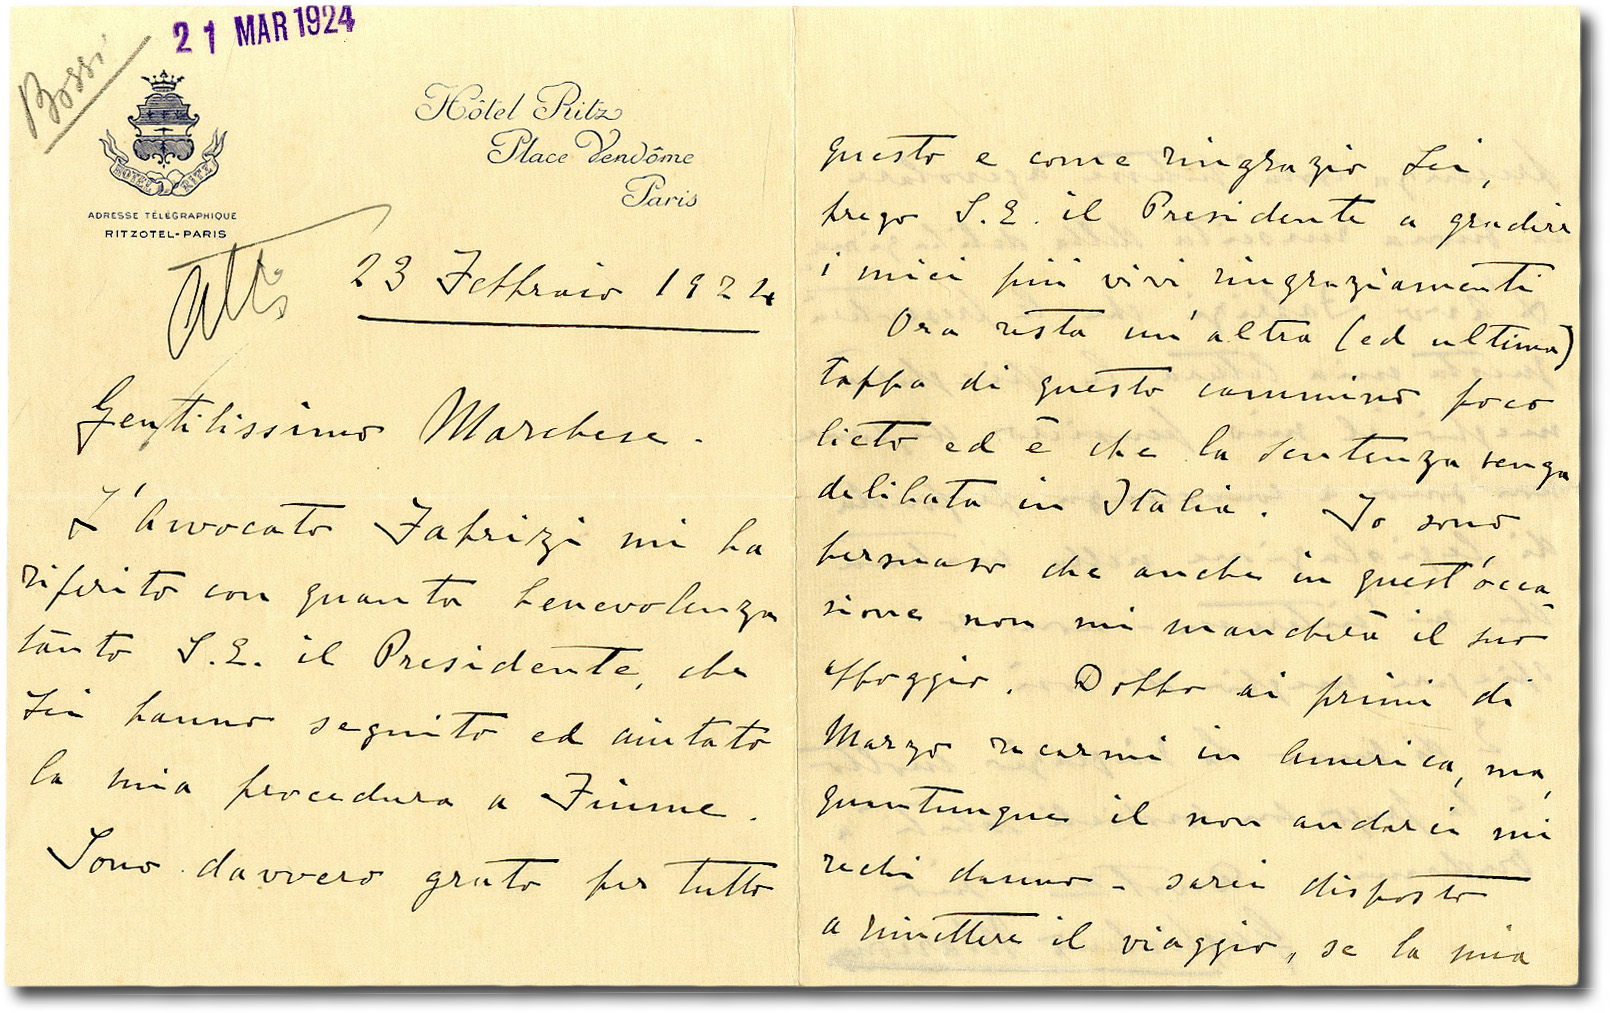 Bossi
21 MAR 1924
HOTEL RITZ
ADRESSE TÉLÉGRAPHIQUE
RITZOTEL-PARIS
Hôtel Ritz
Place Vendôme
Paris
Atti
23 Febbraio 1924
Gentilissimo Marchese.
L'Avvocato Fabrizi mi ha
riferito con quanta benevolenza
tanto S.E. il Presidente, che
Lei hanno seguito ed aiutato
la mia procedura a Fiume.
Sono davvero grato per tutto
questo e come ringrazio Lei,
prego S.E. il Presidente a gradire
i miei più vivi ringraziamenti
Ora resta un'altra (ed ultima)
tappa di questo cammino poco
lieto ed è che la sentenza venga
delibata in Italia. Io sono
persuaso che anche in quest'occa-
sione non mi mancherà il suo
appoggio. Dobbo ai primi di
Marzo recarmi in America, ma,
quantunque il non andarci mi
rechi danno - sarei disposto
a rimettere il viaggio, se la mia